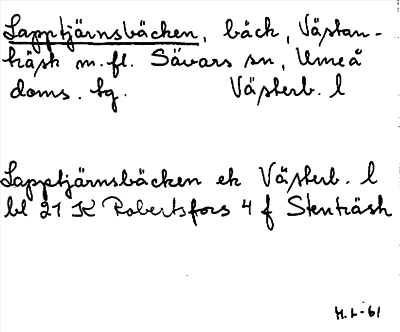 Lapptjärnsbäcken, bäck, Västan-
träsk m.fl. Sävars sn, Umeå
doms. tg. Västerb. l
Lapptjärnsbäcken ek Västerb. l
bl 21 K Robertsfors 4 f Stenträsk
H.L-61